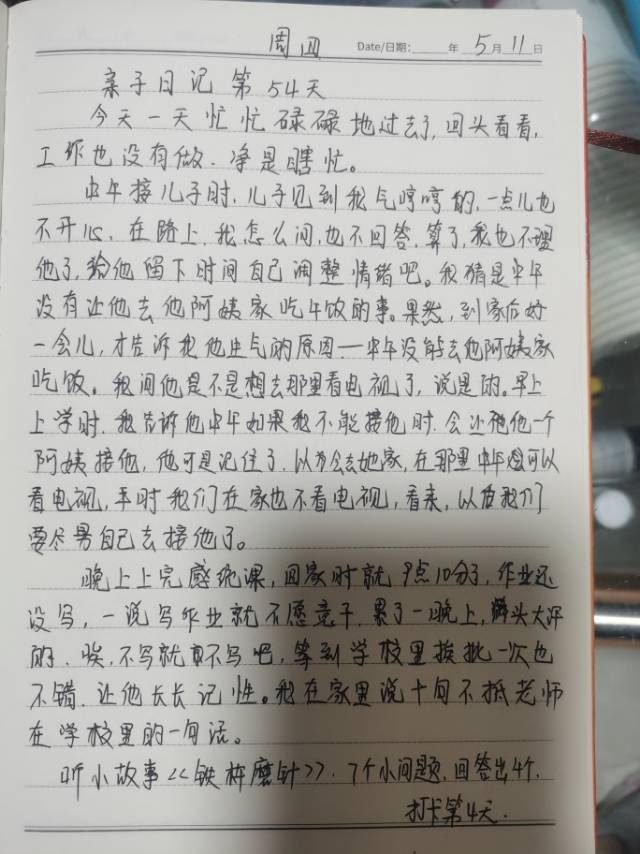 周四 Date/日期: 年 5月 11日
亲子日记 第 54天
今天一天忙忙碌碌地过去了,回头看看,
工作也没有做.净是瞎忙。
中午接儿子时,儿子见到我气哼哼的,一点儿也
不开心,在路上,我怎么问,也不回答,算了,我也不理
他了,给他留下时间自己调整情绪吧。我猜是中午
没有让他去他阿姨家吃午饭的事。果然,到家后好
一会儿,才告诉我他生气的原因——中午没能去他阿姨家
吃饭。我问他是不是想去那里看电视了,说是的。早上
上学时,我告诉他中午如果我不能接他时,会让他一个
阿姨接他,他可是记住了.以为会去她家,在那里中午还可以
看电视,平时我们在家也不看电视,看来,以后我们
要尽男自己去接他了。
晚上上完感统课,回家时就9点10分了,作业还
没写,一说写作业就不愿意干,累了一晚上,满头大汗
的.唉,不写就不写吧,等到学校里挨批一次也
不错.让他长长记性。我在家里说十句不抵老师
在学校里的一句话。
听小故事《铁杵磨针》.7个小问题,回答出4个.
打卡第4天.